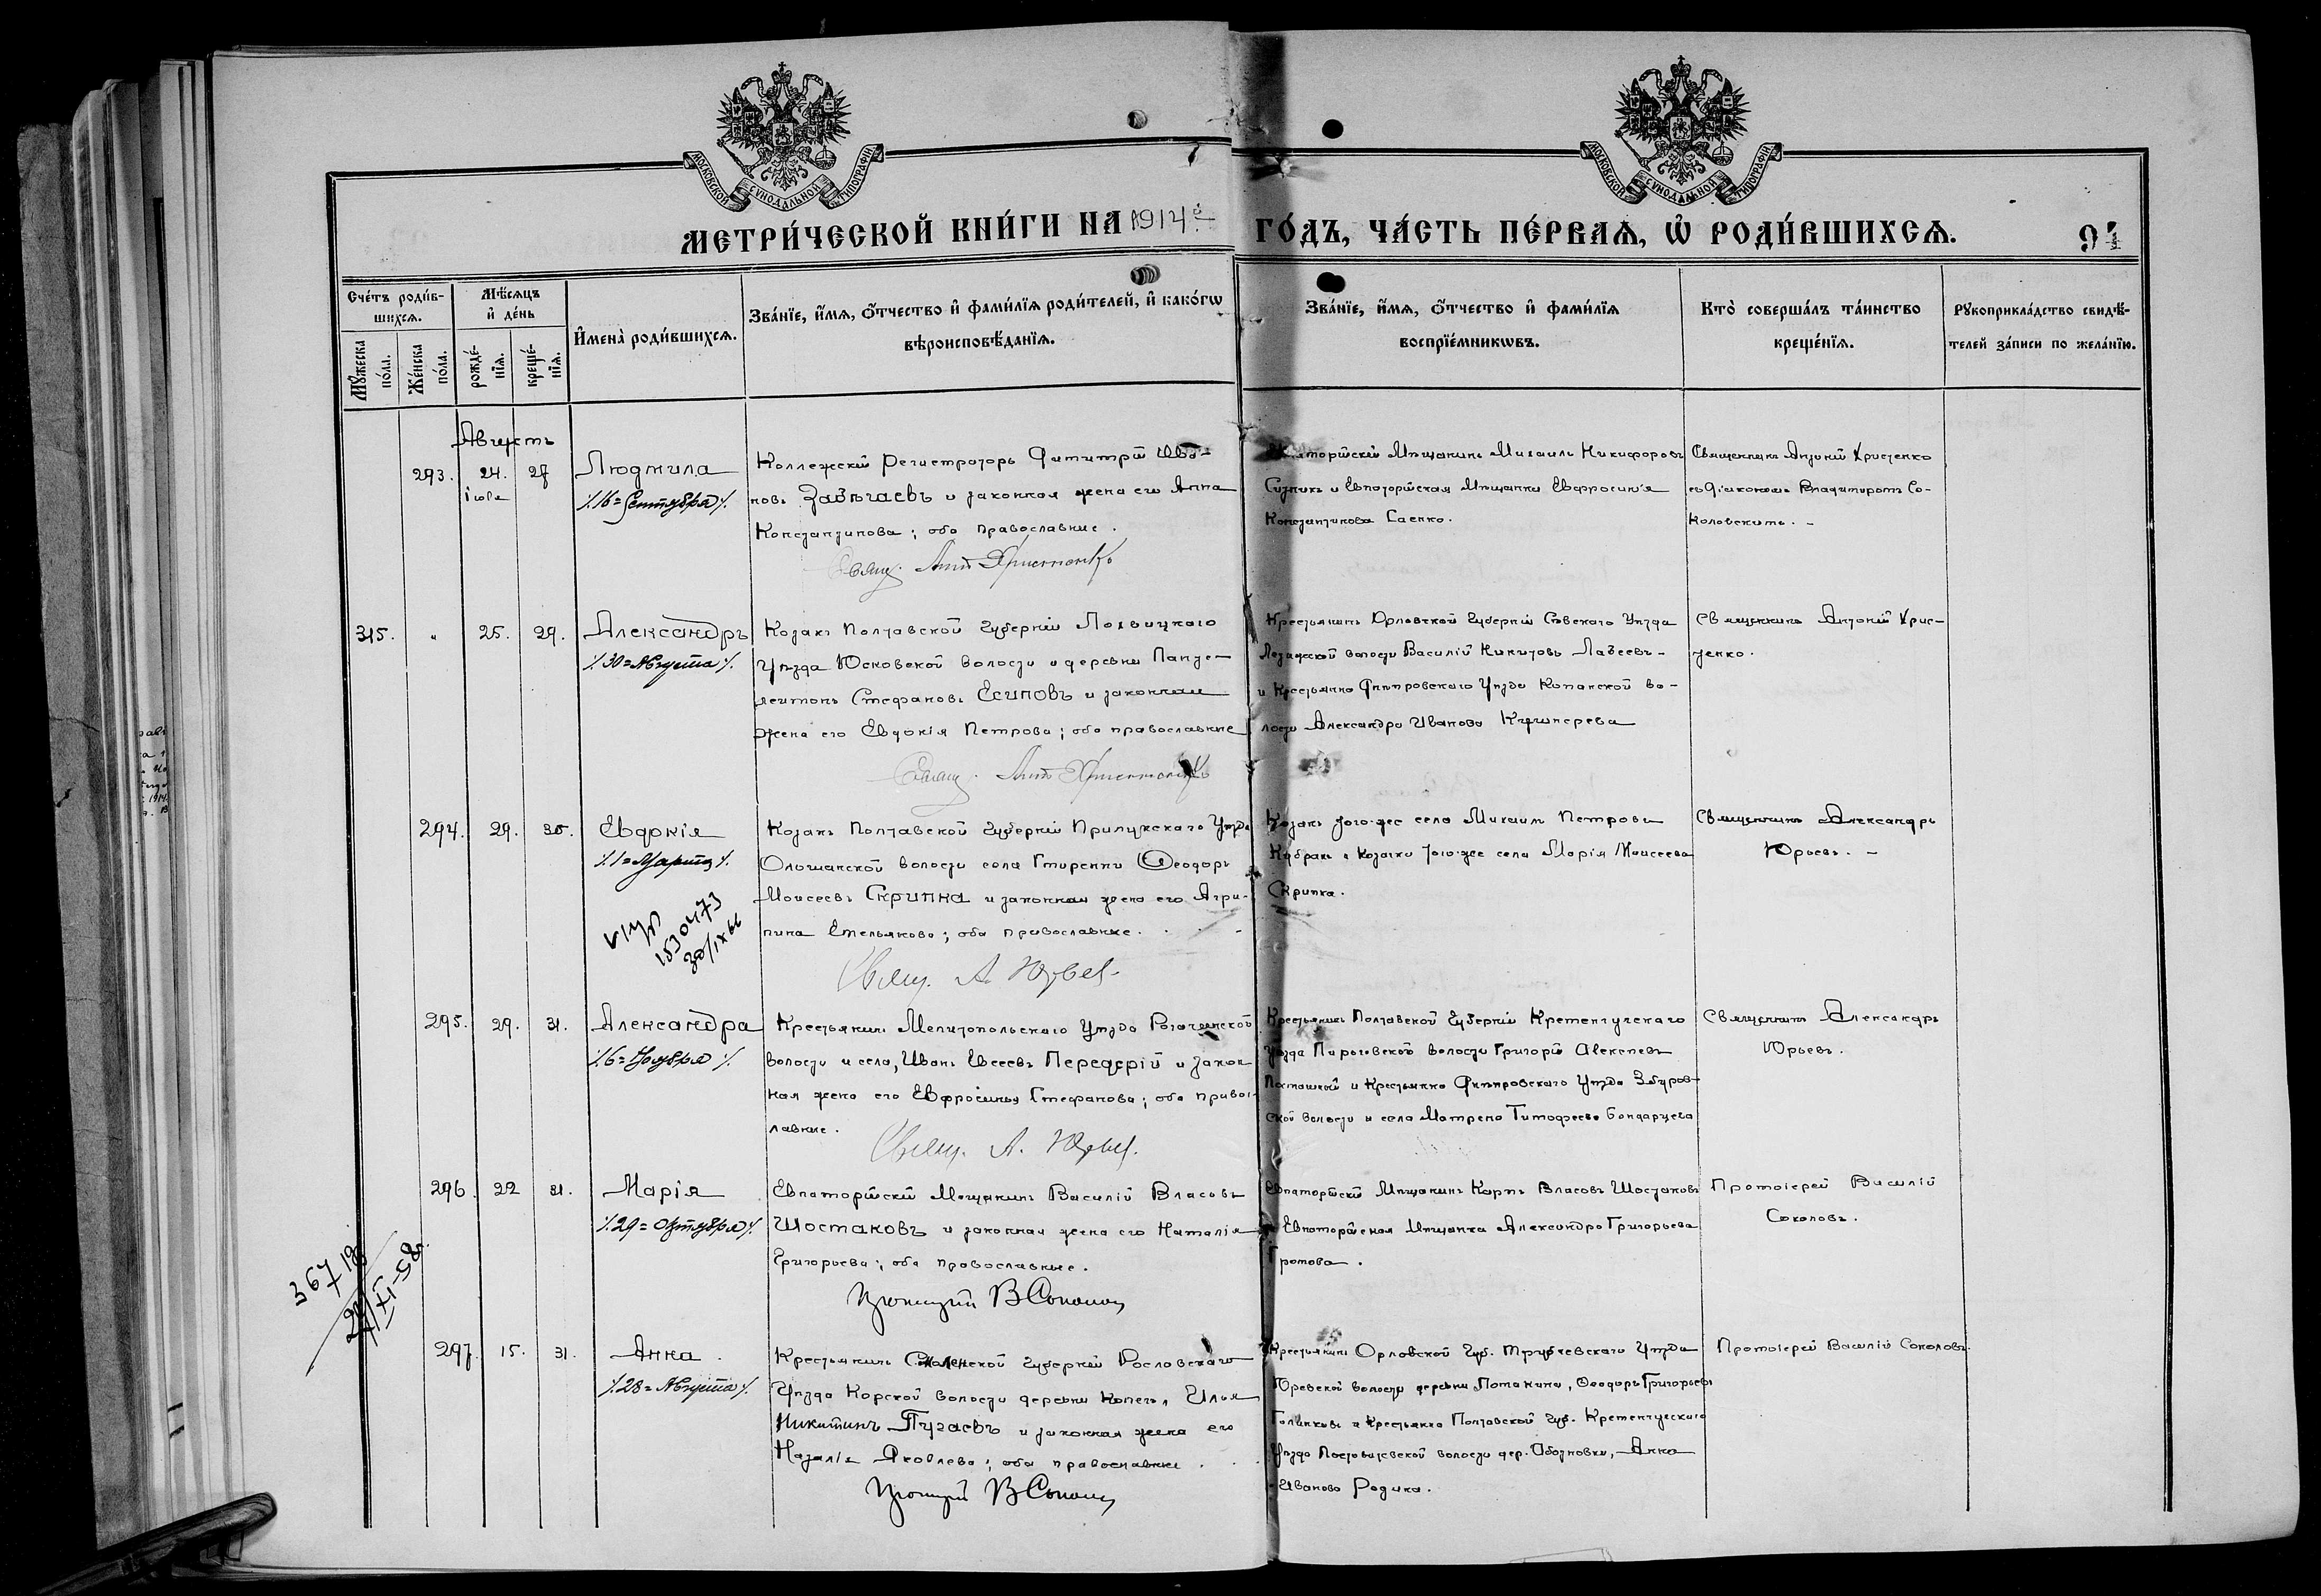 МОСКОВСКОЙ СѴНОДАЛЬНОЙ ТИПОГРАФІИ
МОСКОВСКОЙ СѴНОДАЛЬНОЙ ТИПОГРАФІИ
МЕТРИ́ЧЕСКОЙ КНИ́ГИ НА 1914 й
ГО́ДЪ, ЧА́СТЬ ПЕ́РВАѦ, Ѡ҆ РОДИ́ВШИХСѦ.
94
Сче́тъ роди́в-
шихсѧ.
Мꙋ́жеска
по́ла.
Же́нска
по́ла.
Мѣ́сѧцъ
и҆ де́нь
рожде́-
нїѧ.
креще́-
нїѧ.
И҆мена̀ роди́вшихсѧ.
Зва́нїе, и҆́мѧ, ѻ҆́тчество и҆ фами́лїѧ роди́телей, и҆ како́гѡ
вѣроисповѣ́данїѧ.
Зва́нїе, и҆́мѧ, ѻ҆́тчество и҆ фами́лїѧ
воспрїе́мникѡвъ.
Кто̀ соверша́лъ та́инство
креще́нїѧ.
Рꙋкоприкла́дство свидѣ́-
телей за́писи по жела́нїю.
Августъ
293. 24. 27
іюля
Людмила
/.16=Сентября/.
Коллежскій Регистраторъ Димитрій Ива-
новъ Забѣгаевъ и законная жена его Анна
Константинова; оба православные.
Свящ. Ант Христенко
Евпаторійскій Мѣщанинъ Михаилъ Никифоровъ
и Евпаторійская Мѣщанка Евфросинія
Константинова Саенко.
Священникъ Антоній Христенко
съ Діакономъ Владимиромъ Со-
коловскимъ. -
315. " 25. 29.
Александръ
/.30=Августа/.
Козакъ Полтавской губерніи Лохвицкаго
Уѣзда Юсковской волости и деревни Панте-
леимонъ Стефановъ Есиповъ и законная
жена его Евдокія Петрова; оба православные
Свящ. Ант Христенко
Крестьянинъ Орловской губерніи Сѣвскаго Уѣзда
волости Василій Никитовъ Лазеевъ-
и Крестьянка Днѣпровскаго Уѣзда Копанской во-
лости Александра Иванова Кушнерева
Священникъ Антоній Хрис-
тенко.
294. 29. 30.
Евдокія
/.1=Марта/.
1530473
30/IX 66
Козакъ Полтавской губерніи Прилукскаго Уѣзда
Ольшанской волости села Гмиренки Ѳеодоръ
Моисеевъ Скрипка и законная жена его Агри-
пина Емельянова; оба православные.
Свящ. А. Юрьев
Козакъ того-же села Михаилъ Петровъ
Кабракъ и козачка того-же села Марія Моисеева
Скрипка.
Священникъ Александръ
Юрьевъ. -
295. 29. 31.
Александра
/.6=Ноября/.
Крестьянинъ Мелитопольскаго Уѣзда Рогачинской
волости и села, Иванъ Евсеевъ Передерій и закон
ная жена его Евфросинья Стефанова; оба правос-
лавные.
Свящ. А. Юрьев.
Крестьянинъ Полтавской Губерніи Кременчугскаго
Уѣзда Пироговской волости Григорій Алексѣевъ
и Крестьянка Днѣпровскаго Уѣзда Збурьев-
ской волости и села Матрена Тимофеева Бондарцева
Священникъ Александръ
Юрьевъ.
296. 22 31.
Марія
/.29=Октября/.
36719
21/XI-58г.
Евпаторійскій Мѣщанинъ Василій Власовъ
Шостаковъ и законная жена его Наталія
Григорьева; оба православные.
Протоіерей В Соколов
Евпаторійскій Мѣщанинъ Карпъ Власовъ Шостаковъ
и Евпаторійская Мѣщанка Александра Григорьева
Громова.
Протоіерей Василій
Соколовъ.
297. 15. 31.
Анна.
/.28=Августа/.
Крестьянинъ Смоленской губерніи Рославскаго
Уѣзда Корской волости деревни Илья
Никитинъ Пугаевъ и законная жена его
Наталія Яковлева; оба православные
Протоіерей В Соколов
Крестьянинъ Орловской Губ. Трубчевскаго Уѣзда
Юревской волости деревни Потакина, Ѳеодоръ Григорьевъ
Голинковъ и Крестьянка Полтавской Губ. Кременчугскаго
Уѣзда волости дер. Обозновки, Анна
Иванова Родина.
Протоіерей Василій Соколовъ.